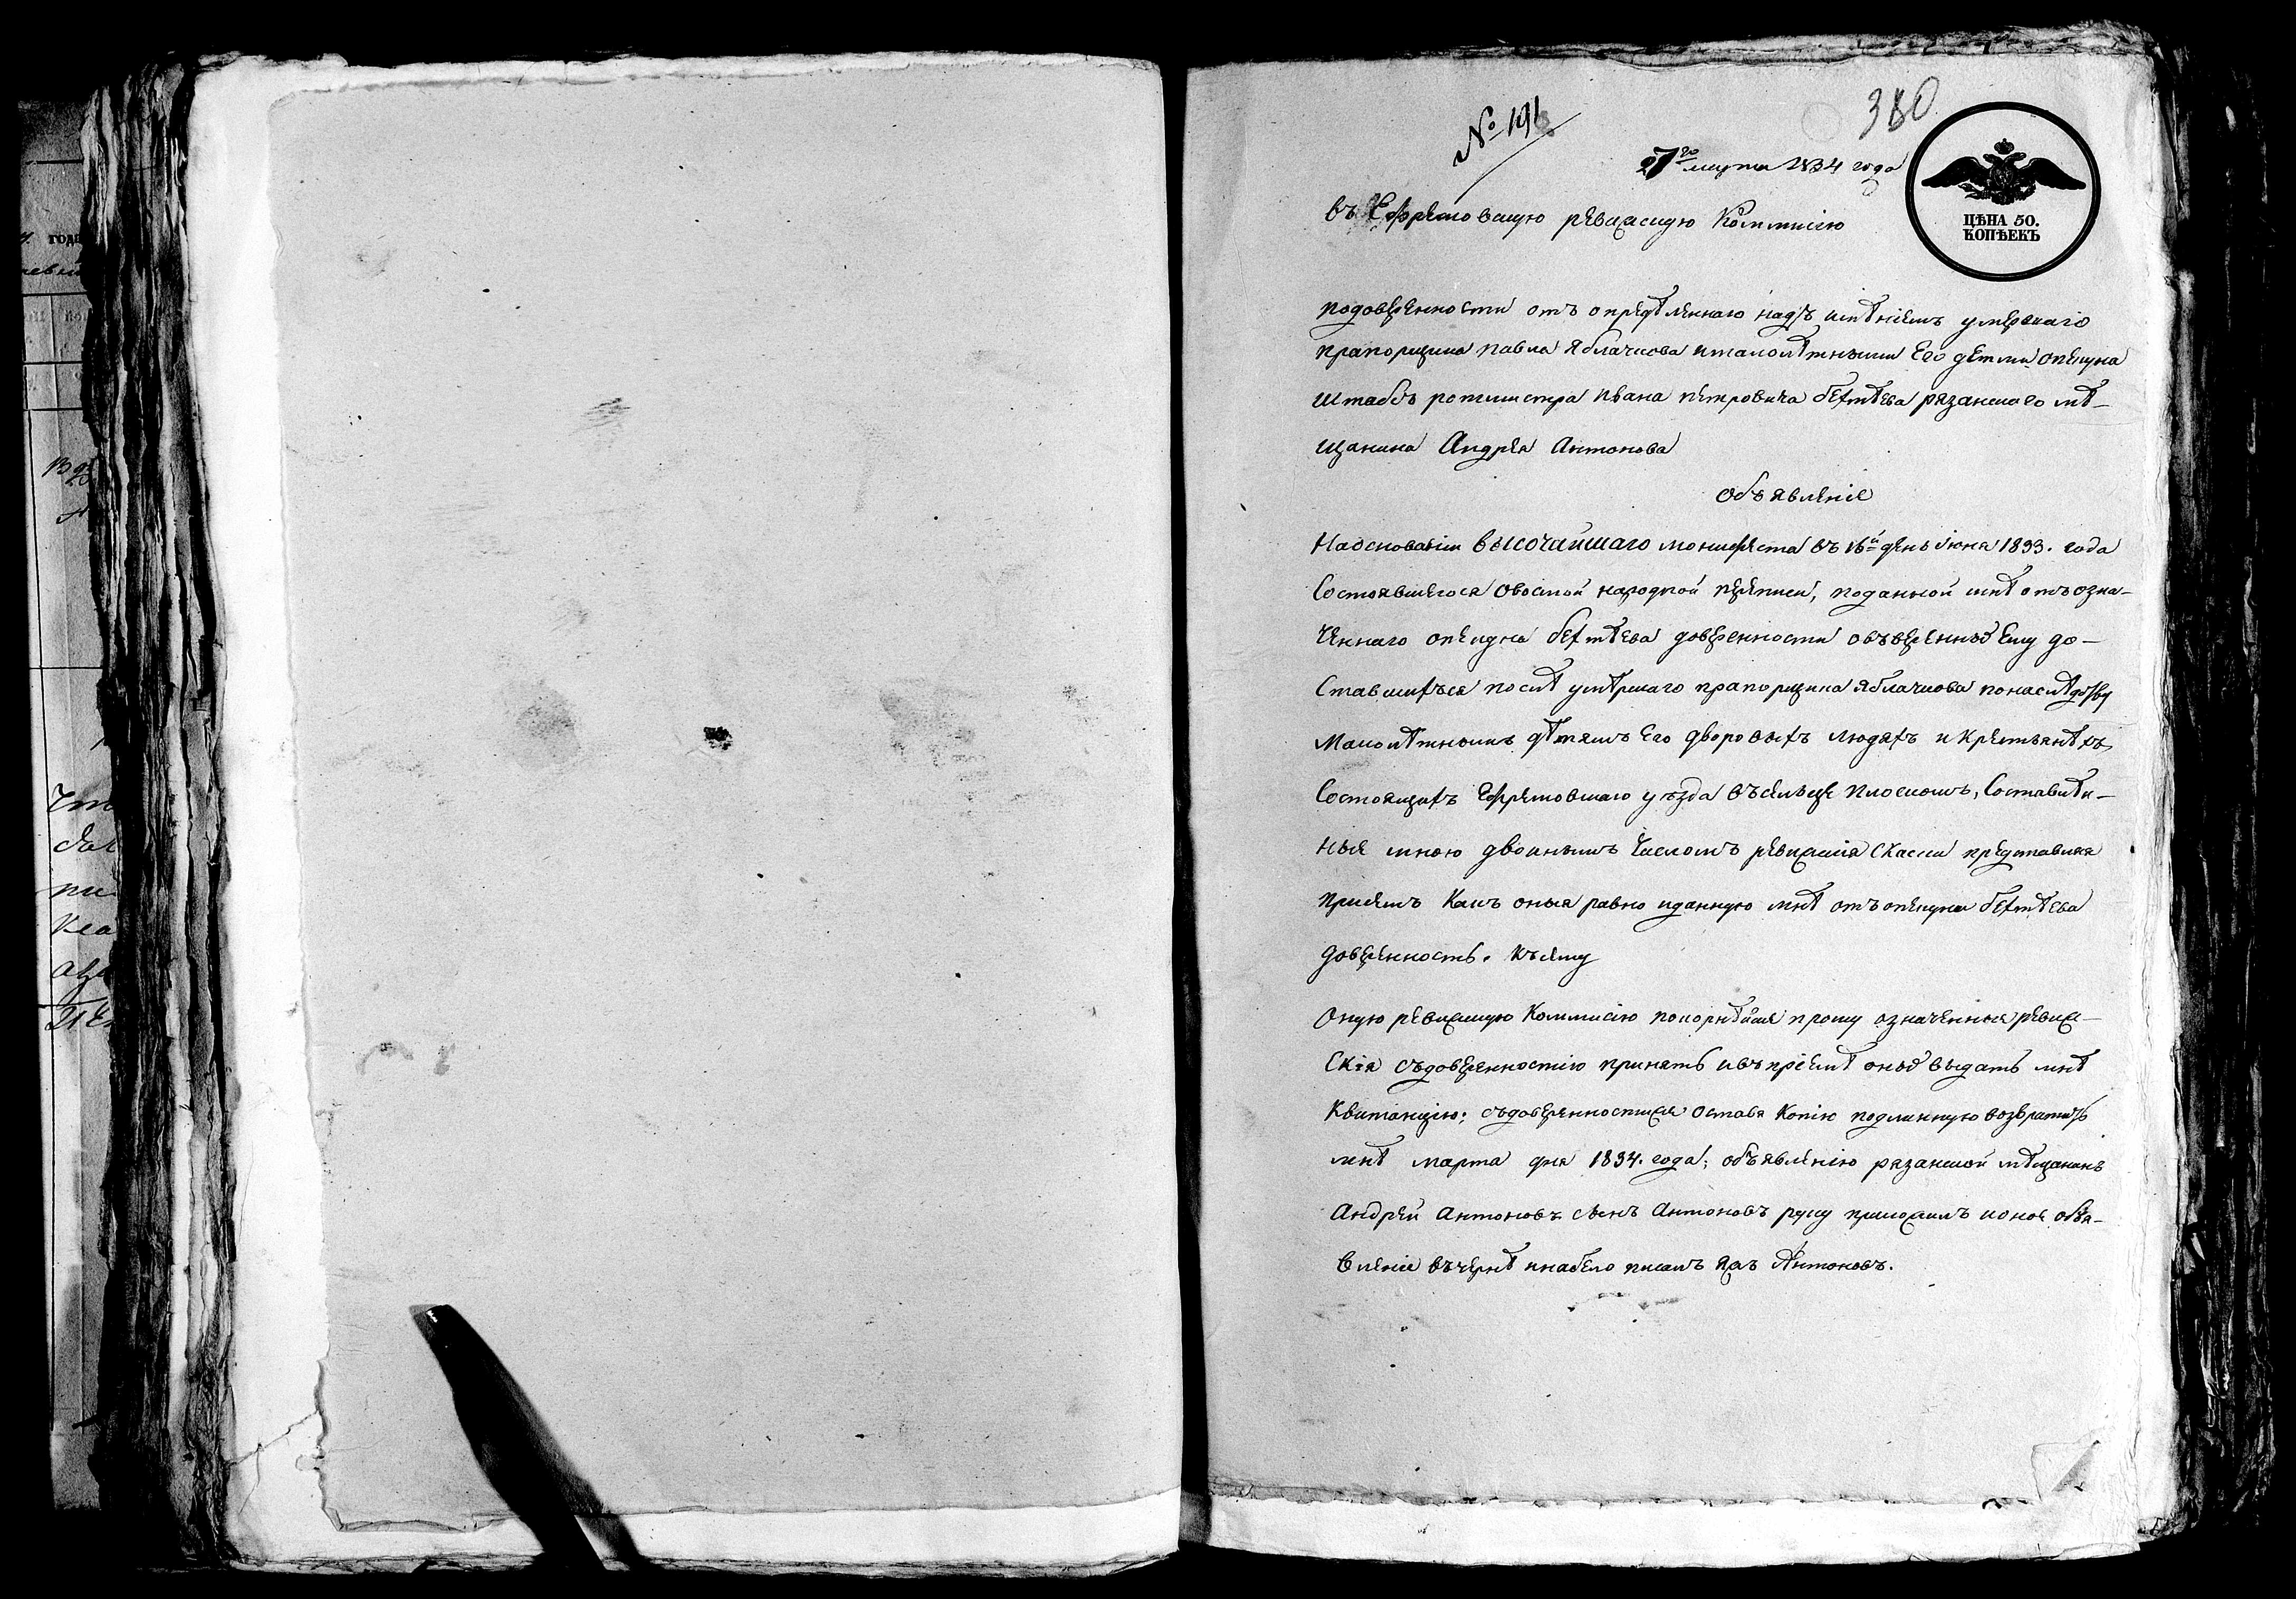 № 191
380
27го марта 1834 года
ЦѢНА 50.
КОПѢЕКЪ
въ Ефремовскую ревизскую Коммисію
подоверенности отъ опредѣленнаго надъ имѣніемъ умершаго
прапорщика павла Яблачкова ималолѣтными Его детми опекуна
Штабсъ ротмистра ивана петровича бехтѣева рязанскаго мѣ-
щанина Андрея Антонова
Объявленіе
Наосновании высочайшаго манифеста въ 16й день июня 1833. года
Состоявшегося овоснои народной переписи, поданной мнѣ отъ озна-
ченнаго опекуна бехтѣева доверенности овъверенныхъ Ему до-
ставшихъся послѣ умѣршаго прапорщика Яблачкова понаслѣдству
Малолѣтнымъ дѣтямъ Его дворовыхъ людяхъ и Крестьянѣхъ,
Состоящихъ Ефремовскаго уѣзда въсельце Плоскомъ, Составлѣн-
ные мною двоинымъ числомъ ревизския Скаски представляя
присемъ Какъ оныя равно иданную мнѣ отъ опекуна бехтѣева
доверенность. Късему
Оную ревизскую Коммисію покорнѣйше прошу означенныя ревиз-
Скія съдоверенностію принять ивъ пріемѣ оныхъ выдать мнѣ
Квитанцію; съдоверенности оставя Копію подлинную возвратить
мнѣ марта дня 1834. года; объявленію рязанской мѣщанинъ
Андрей Антоновъ сынъ Антоновъ руку приложилъ ионое объя-
вленіе въчернѣ инабело писалъ Антоновъ.